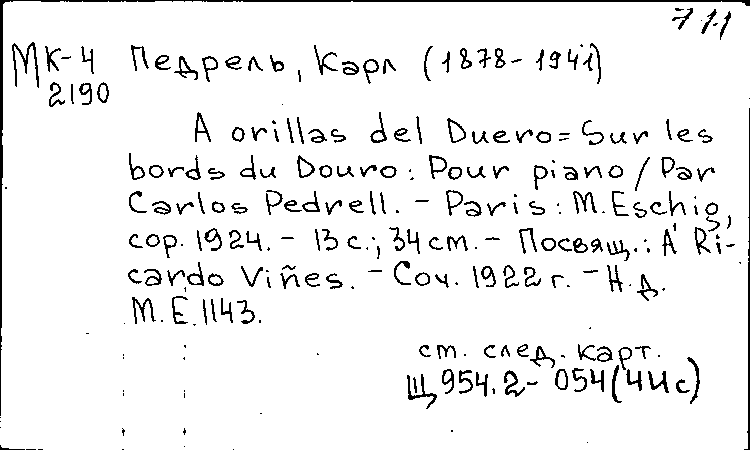 711
МК-4 Педрель, Карл (1878-1941)
2190
A orillas del Duero = Sur les
bords du Douro : Pour piano / Par
Carlos Pedrell. - Paris : M. Eschig,
cop. 1924. - 13 с.; 34 см. - Посвящ.: A Ri-
cardo Viñes. - Соч. 1922 г. - Н. д.
M. E. 1143.
ст. след. карт.
Щ954.2-054(4Ис)